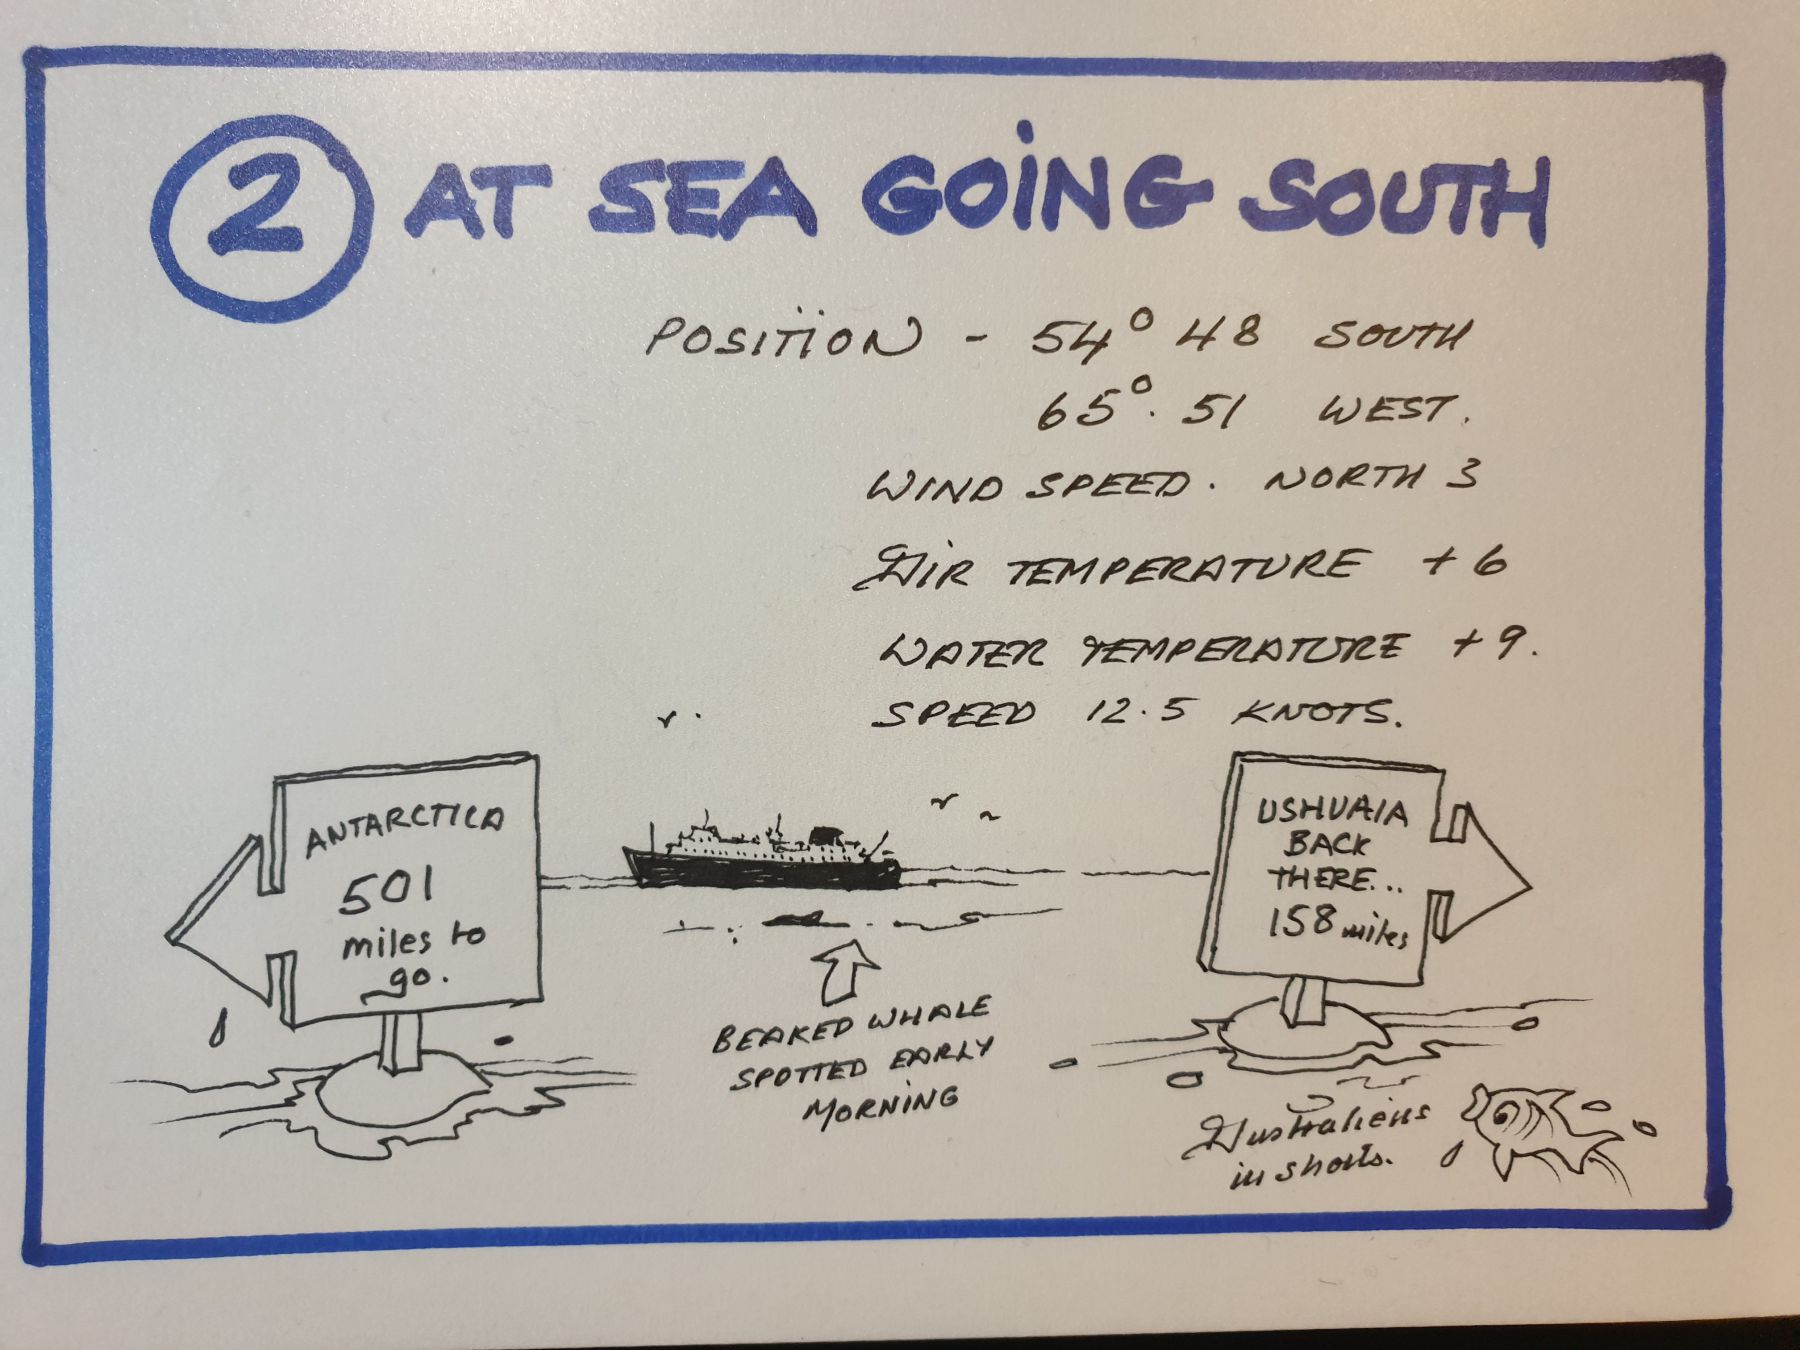 2 AT SEA GOING SOUTH
POSITION - 54° 48 SOUTH
65°. 51 WEST.
WIND SPEED. NORTH 3
AIR TEMPERATURE +6
WATER TEMPERATURE +9.
SPEED 12.5 KNOTS.
ANTARCTICA
501
miles to
go.
USHUAIA
BACK
THERE...
158 miles
BEAKED WHALE
SPOTTED EARLY
MORNING
Australiens
in shorts.